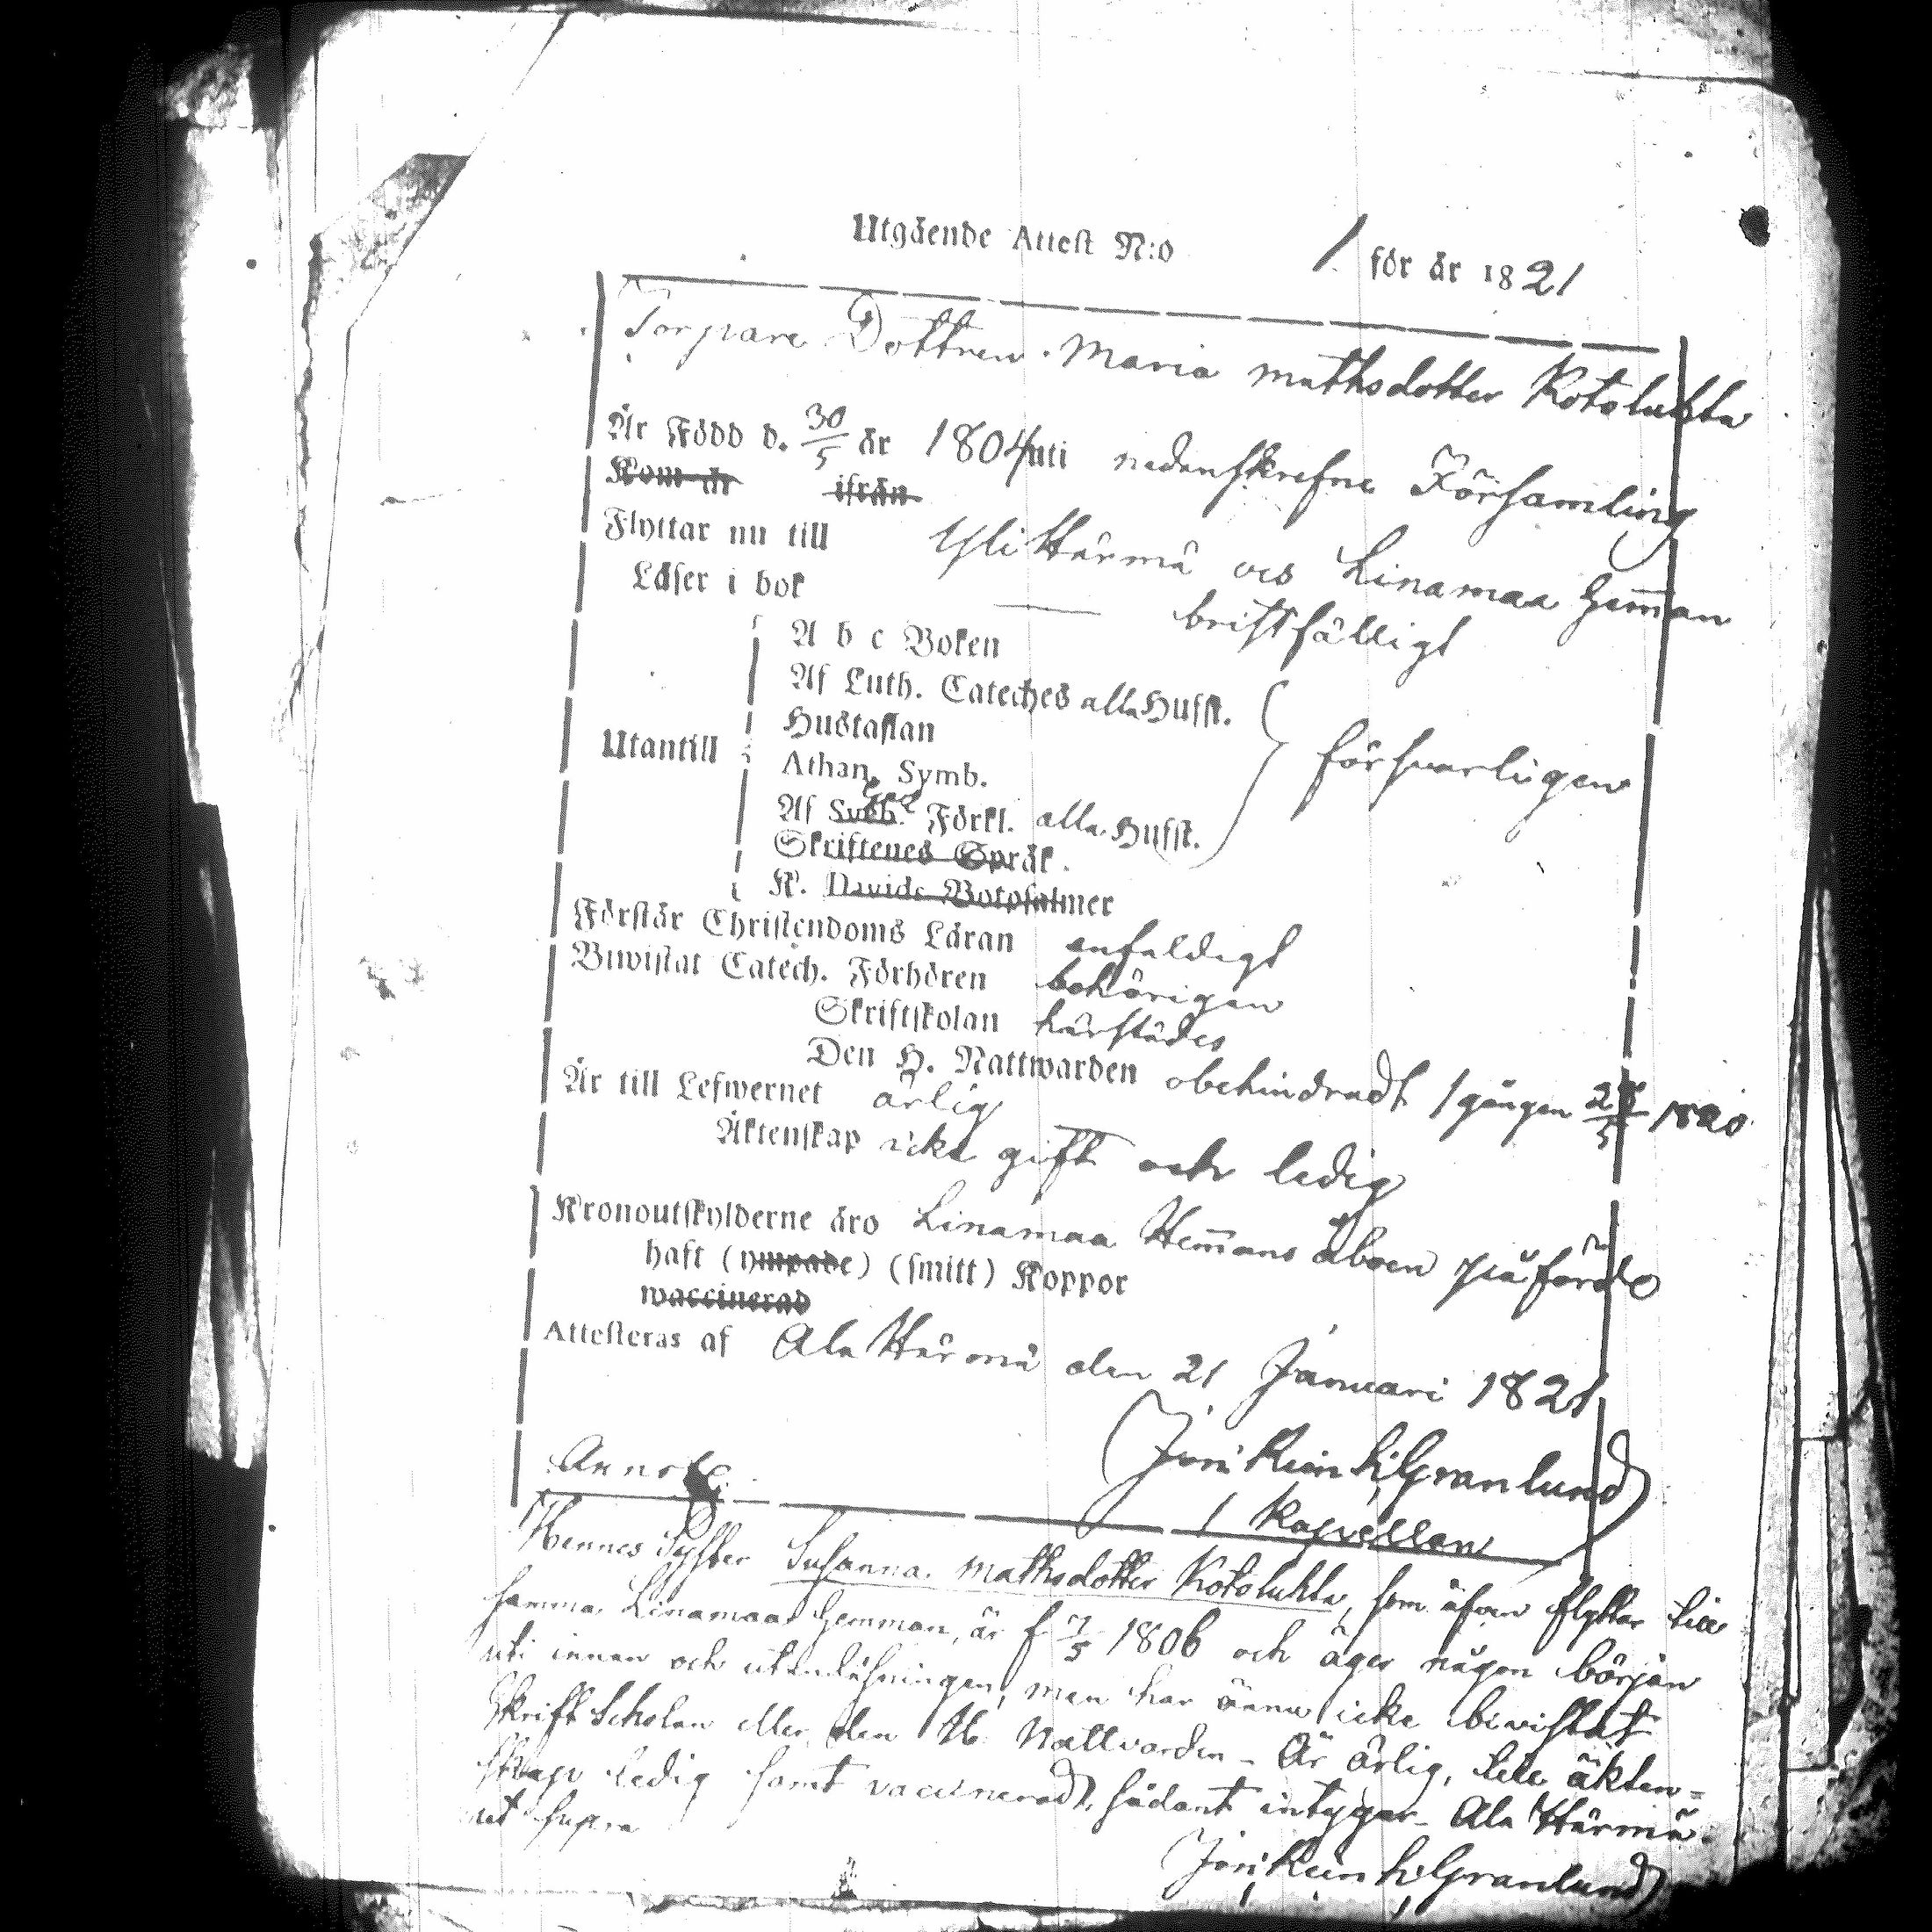 Utgående Attest N:o 1. för år 1821
Torpare Dottren Maria mathsdotter Kotoluhta
Är Född d. 30/5 år 1804 uti nedanskrefne Församling
Kom år ifrån
Flyttar nu till Yli Härmä och Linamaa Hemman
Läser i bok — bristfälligt
A b c Boken
Af Luth. Cateches alla Hufst.
Hustaflan
Utantill
Athan. Symb.
försvarligen
Af Sveb. Förkl. alla Hufst.
Skriftenes Språk.
K. Davids Botpsalmer
Förstår Christendoms Läran enfaldigt
Biwistat Catech. Förhören behörigen
Skriftskolan härstädes
Den H. Nattwarden obehindradt 1 gången 1820
Är till Lefwernet ärlig
Äktenskap icke gift och ledig
Kronoutskylderne äro Linamaa Hemans åboen påförde
haft (ympade) (smitt) Koppor
waccinerad
Attesteras af Ala Härmä den 21 Januari 1821
Granlund
Kapellan
Hennes Syster Susanna mathsdotter Kotoluhta, som äfven flyttar till
samma Linamaa hemman, är f. 7/5 1806 och äger någon början
uti innan och utanläsningen, men har ännu icke bivistat
Skrift Scholan eller den H. Nattvarden - Är ärlig, till äkten=
skap ledig samt vaccinerad, sådant intygar - Ala Härmä
ut supra
Granlund